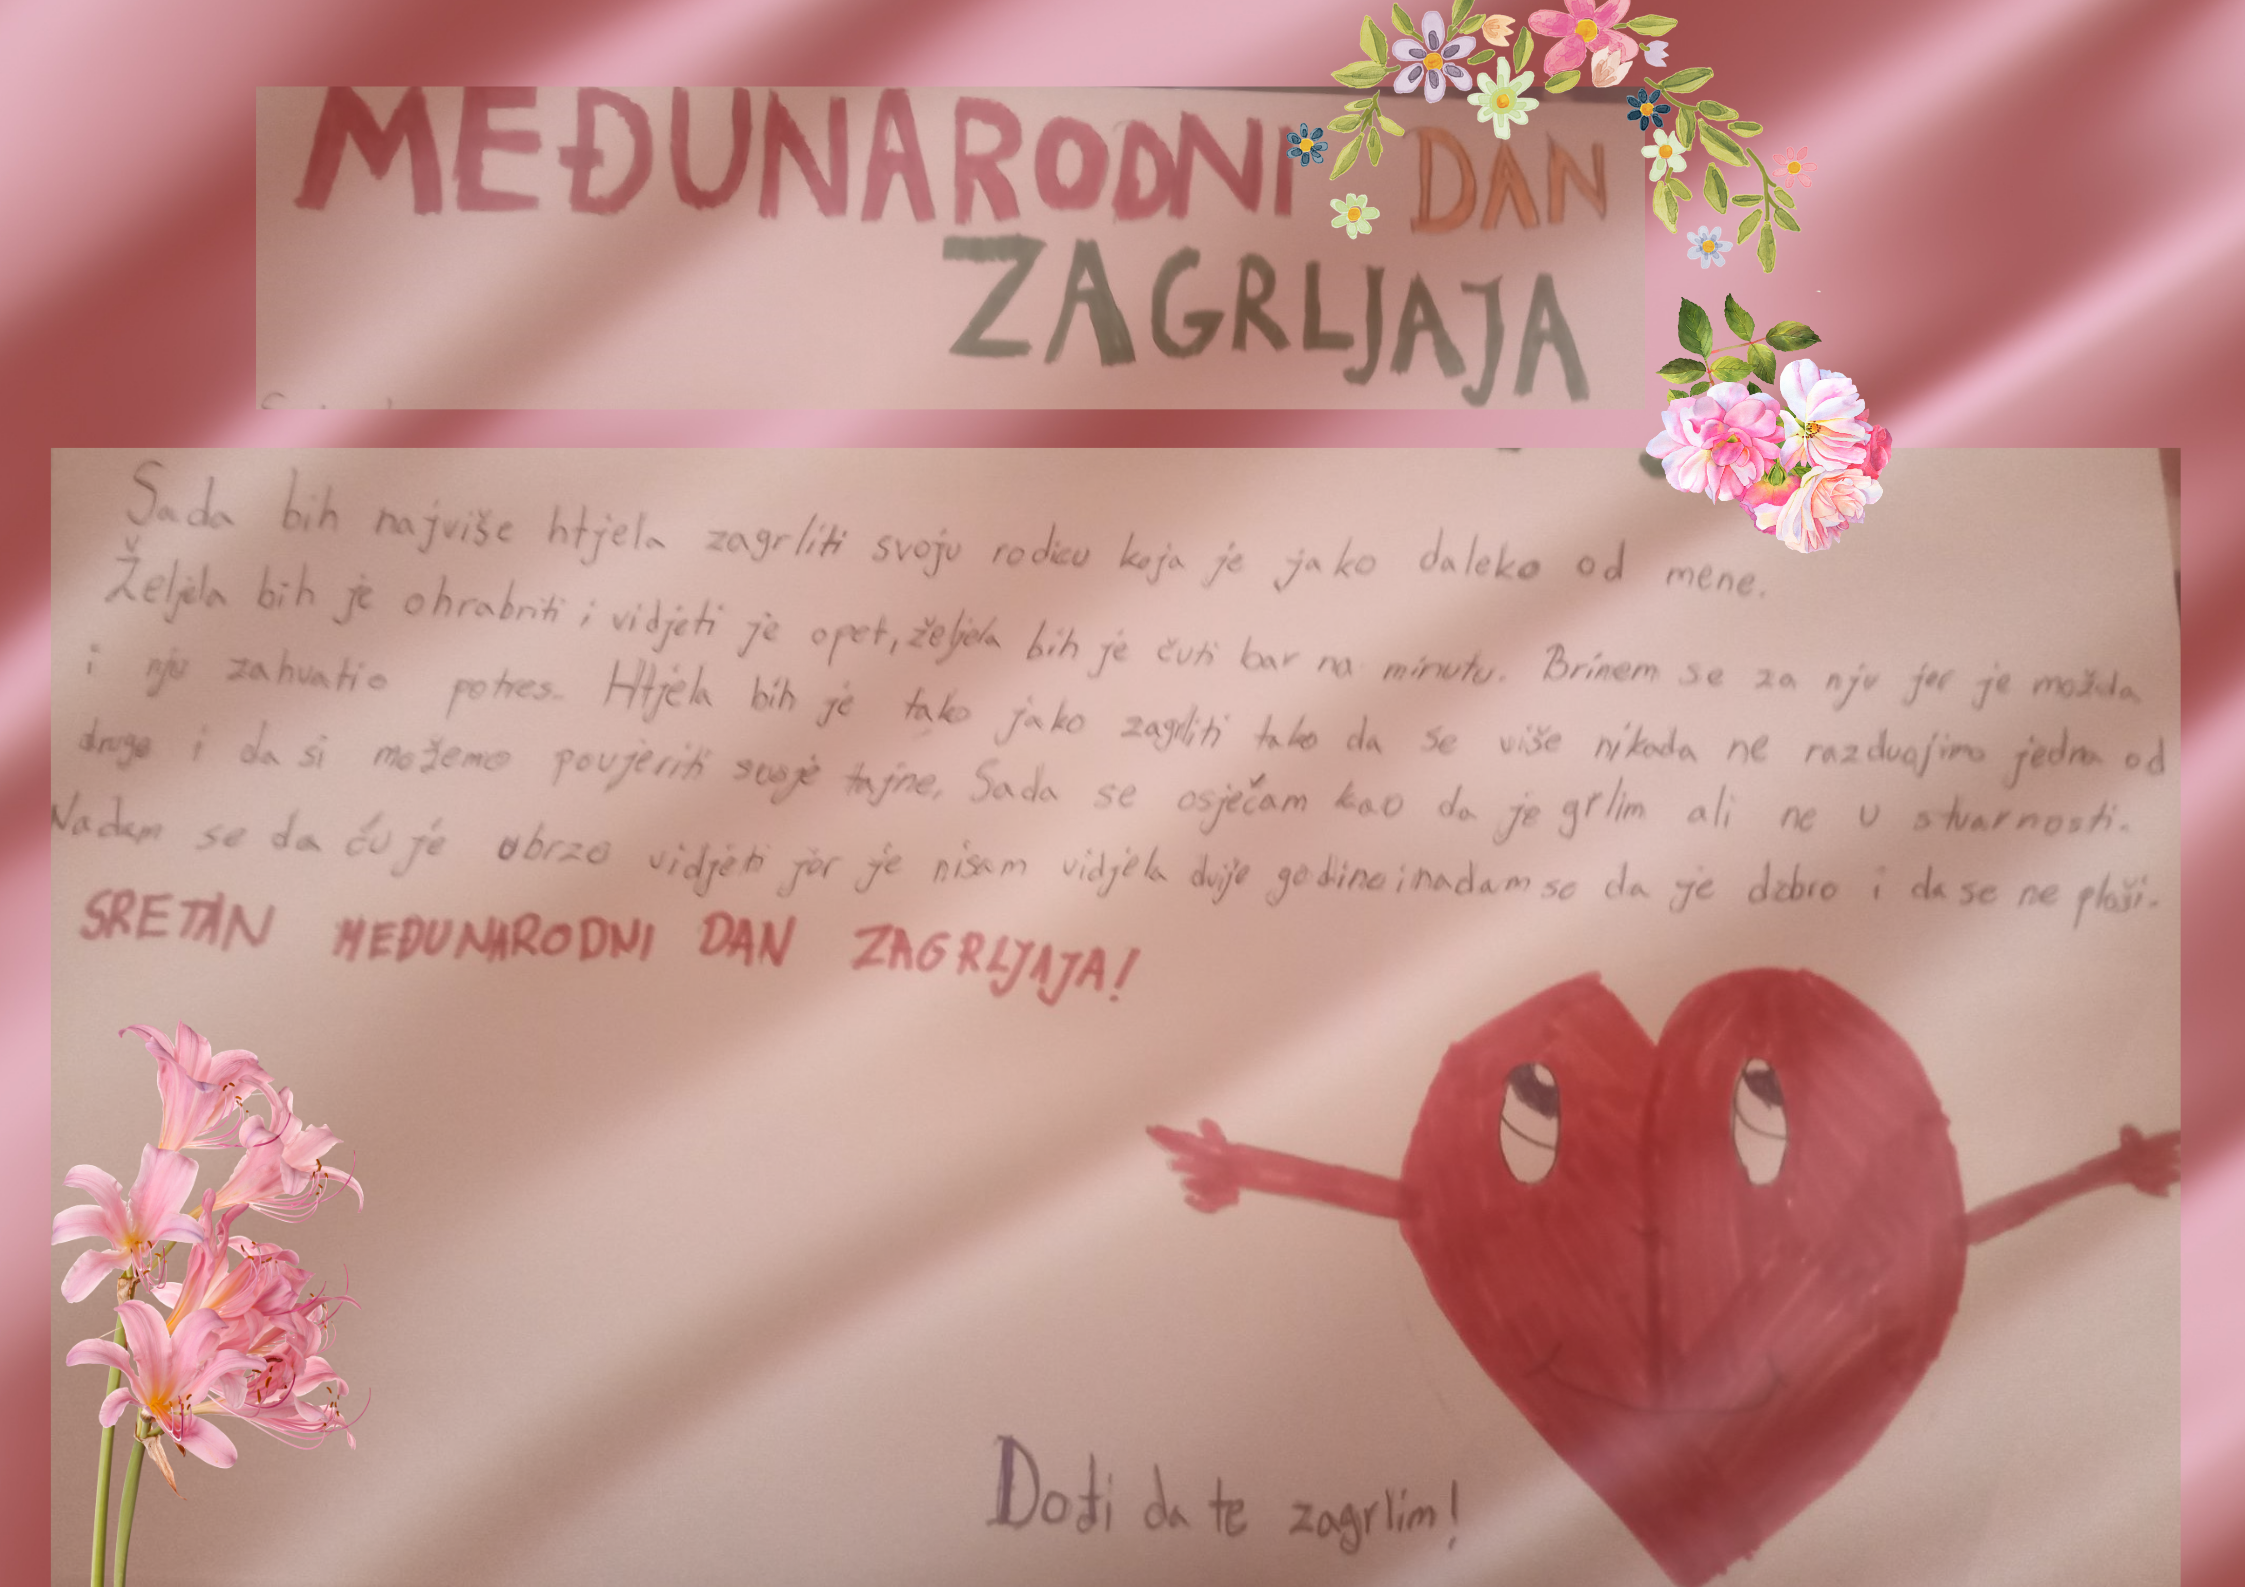 MEĐUNARODNI DAN
ZAGRLJAJA
Sada bih najviše htjela zagrliti svoju rodicu koja je jako daleko od mene.
Željela bih je ohrabriti i vidjeti je opet, željela bih je čuti bar na minutu. Brinem se za nju jer je možda
i nju zahvatio potres. Htjela bih je tako jako zagrliti tako da se više nikada ne razdvojimo jedna od
druge i da si možemo povjeriti svoje tajne. Sada se osječam kao da je grlim ali ne u stvarnosti.
Nadam se da ću je ubrzo vidjeti jer je nisam vidjela dvije godine i nadam se da je dobro i da se ne plaši.
SRETAN MEĐUNARODNI DAN ZAGRLJAJA!
Dođi da te zagrlim!